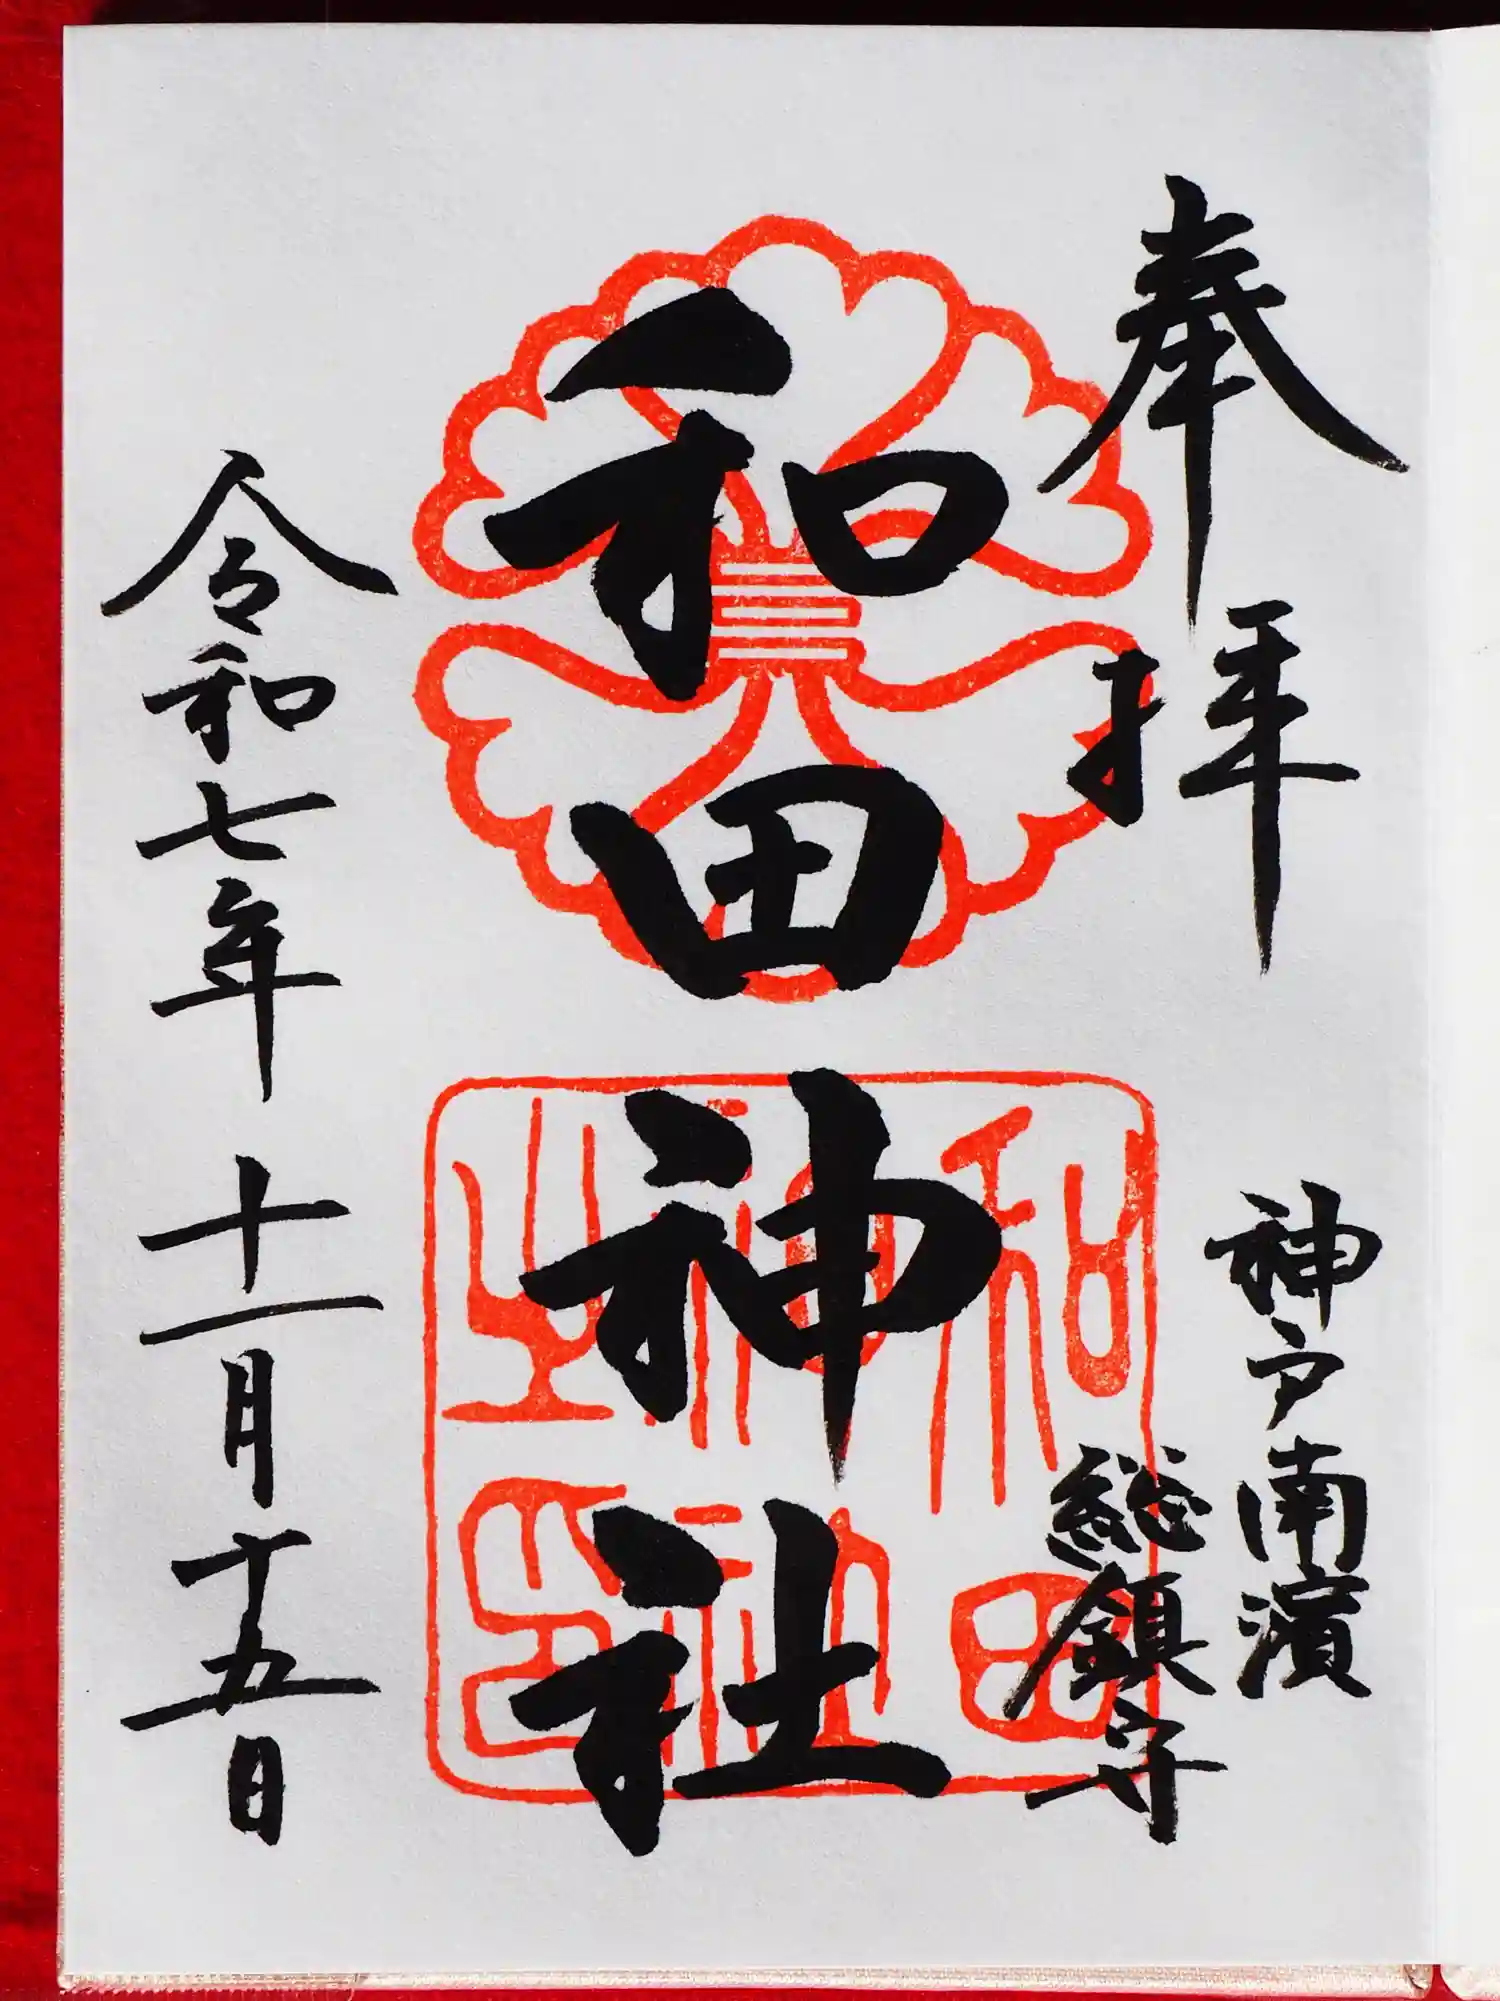 奉拝
神戸南濱
総鎮守
和田神社
和田神社之印
令和七年十一月十五日